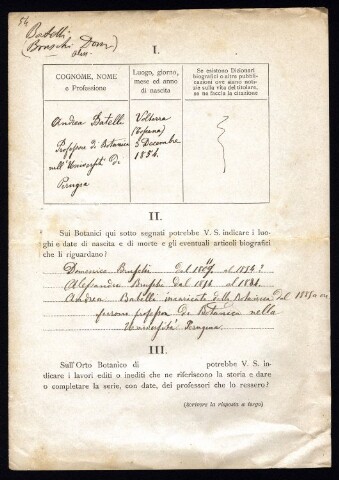 54
Batelli
(Bruschi Dom)
Aless.
I.
COGNOME, NOME
e Professione
Luogo, giorno,
mese ed anno
di nascita
Se esistono Dizionari
biografici o altre pubblicazioni
ove sono notizie
sulla vita del titolare,
se ne faccia la citazione
Andrea Batelli
Professore di Botanica
nell'Università di
Perugia
Volterra
5 Decembre
1854.
II.
Sui Botanici qui sotto segnati potrebbe V. S. indicare i luo-
ghi e date di nascita e di morte e gli eventuali articoli biografici
che li riguardano?
Domenico Bruschi dal al
Alessandro Bruschi dal al
Andrea Batelli incaricato della Botanica dal
professore di Botanica nella
Università Perugina
III.
Sull'Orto Botanico di potrebbe V. S. in-
dicare i lavori editi o inediti che ne riferiscono la storia e dare
o completare la serie, con date, dei professori che lo ressero?
(Scrivere la risposta a tergo)